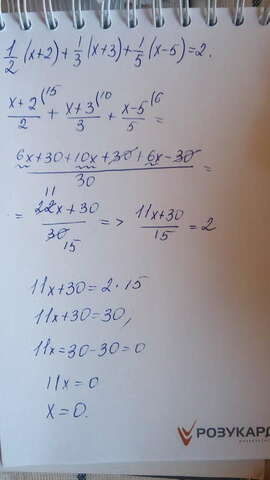 1/2 (x+2) + 1/3 (x+3) + 1/5 (x-5) = 2.
x+2(15/2 + x+3(10/3 + x-5(6/5 =
6x+30+10x+30+6x-30/30 =
= 11 22x+30/30 15 => 11x+30/15 = 2
11x+30 = 2·15
11x+30 = 30,
11x = 30-30 = 0
11x = 0
x = 0.
РОЗУКАРД